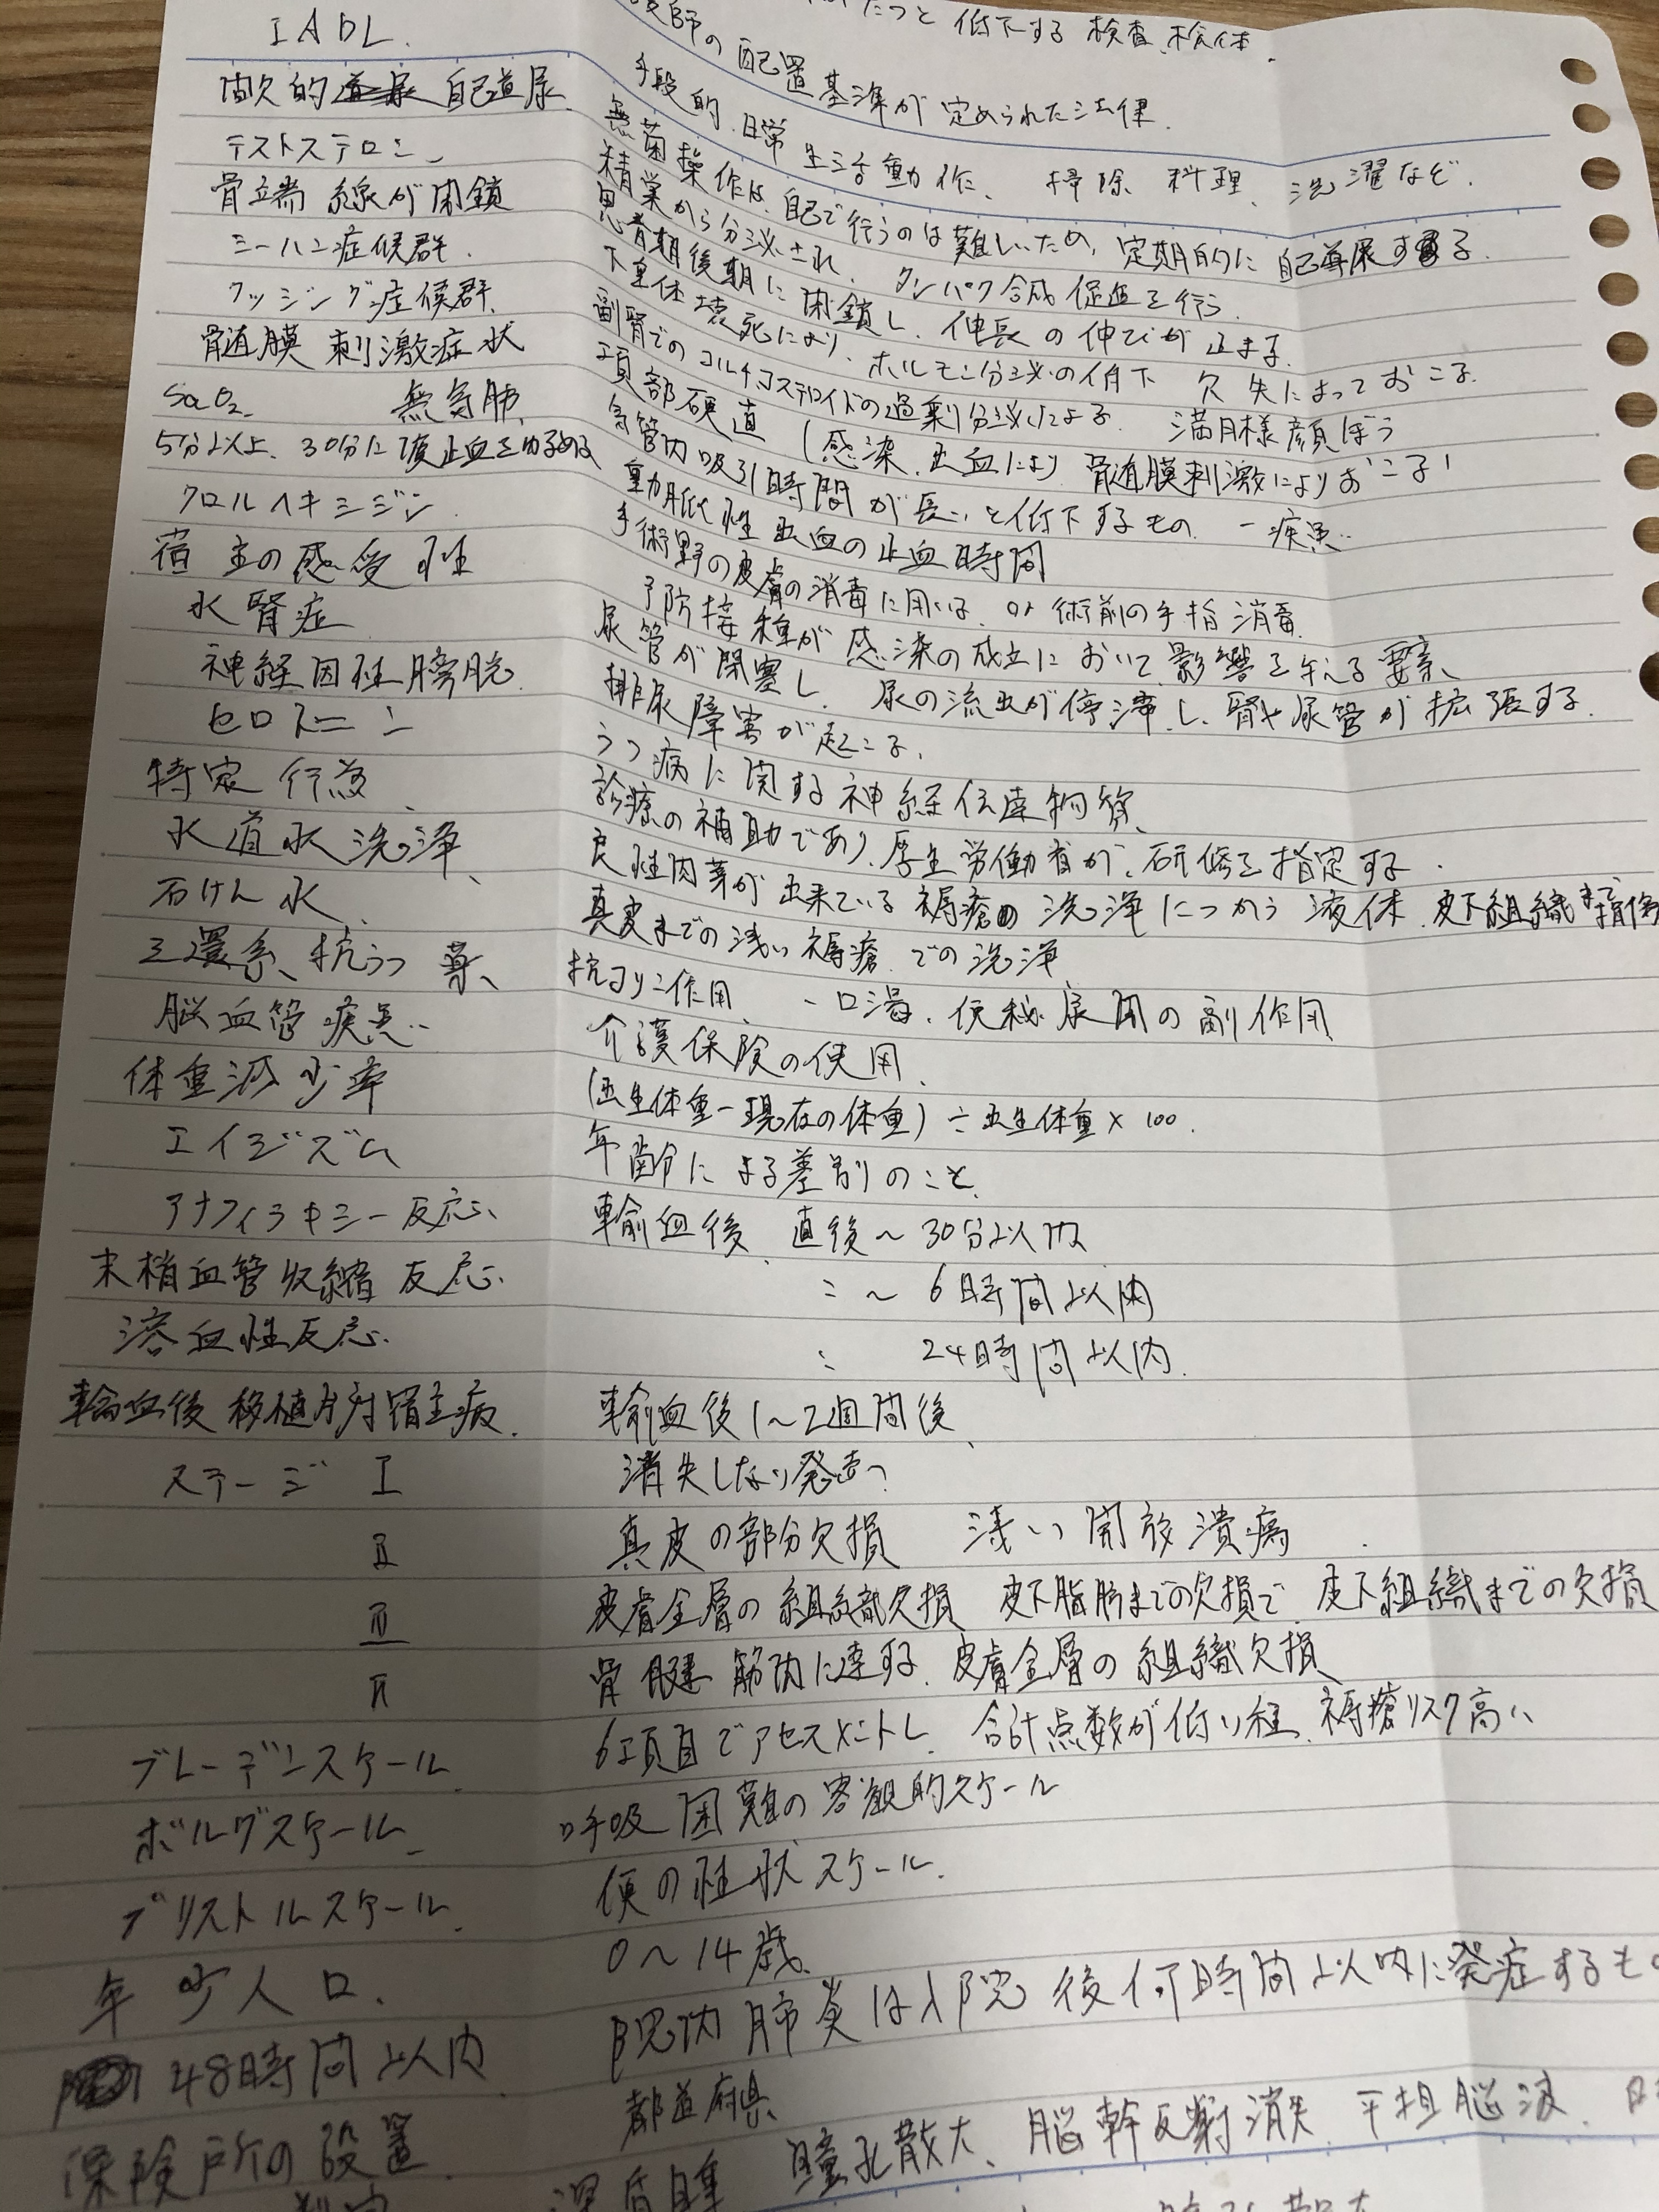 たつと 低下する 検査、検体.
師の配置基準が 定められた法律.
IADL. 手段的 日常 生活動作、 掃除 料理、洗濯など.
間欠的 自己導尿 無菌操作は、自己で行うのは難しいため、定期的に 自己導尿する.
テストステロン 精巣から分泌され、 タンパク合成 促進を行う.
骨端線が閉鎖 思春期後期に 閉鎖し 伸長の伸びが 止まる.
シーハン症候群. 下垂体壊死により、ホルモン分泌の低下 欠失によっておこる.
クッシング症候群. 副腎でのコルチコステロイドの過剰分泌による. 満月様顔ぼう
骨髄膜 刺激症状 項部硬直 (感染、出血により 骨髄膜刺激によりおこる)
SaO2. 無気肺. 気管内吸引時間が長いと低下するもの ー疾患
5分以上、30分に1度止血をゆるめる 動脈性出血の止血時間
クロルヘキシジン 手術野の皮膚の消毒に用いる. or 術前の手指消毒.
宿主の感受性 予防接種が 感染の成立において影響を与える要素、
水腎症 尿管が閉塞し、 尿の流出が停滞し、腎や尿管が拡張する.
神経因性膀胱. 排尿障害が起こる、
セロトニン うつ病に関する神経伝達物質、
特定行為、 診療の補助であり、厚生労働省が、研修を指定する.
水道水洗浄、 良性肉芽が出来ている褥瘡の洗浄につかう液体.皮下組織まで損傷
石けん水、 真皮までの浅い褥瘡での洗浄
三環系、抗うつ薬、 抗コリン作用、 ー口渇、便秘 尿閉の副作用
脳血管疾患 介護保険の使用、
体重減少率 (出生体重ー現在の体重)÷出生体重×100.
エイジズム 年齢による差別のこと、
アナフィラキシー反応、 輸血後、直後~30分以内
末梢血管収縮反応、 : ~ 6時間以内
溶血性反応. : 24時間以内.
輸血後移植片対宿主病. 輸血後1~2週間後、
ステージ I 消失しない発赤
II 真皮の部分欠損 浅い開放潰瘍.
III 皮膚全層の組織欠損 皮下脂肪までの欠損で、皮下組織までの欠損
IV 骨 腱 筋肉に達する、皮膚全層の組織欠損
ブレーデンスケール. 6項目でアセスメントし、合計点数が低い程、褥瘡リスク高い
ボルグスケール. 呼吸困難の客観的スケール
ブリストルスケール. 便の性状スケール.
年少人口. 0~14歳.
48時間以内 院内肺炎は入院後何時間以内に発症するもの
保険所の設置. 都道府県
深昏睡 瞳孔散大、脳幹反射消失 平坦脳波、